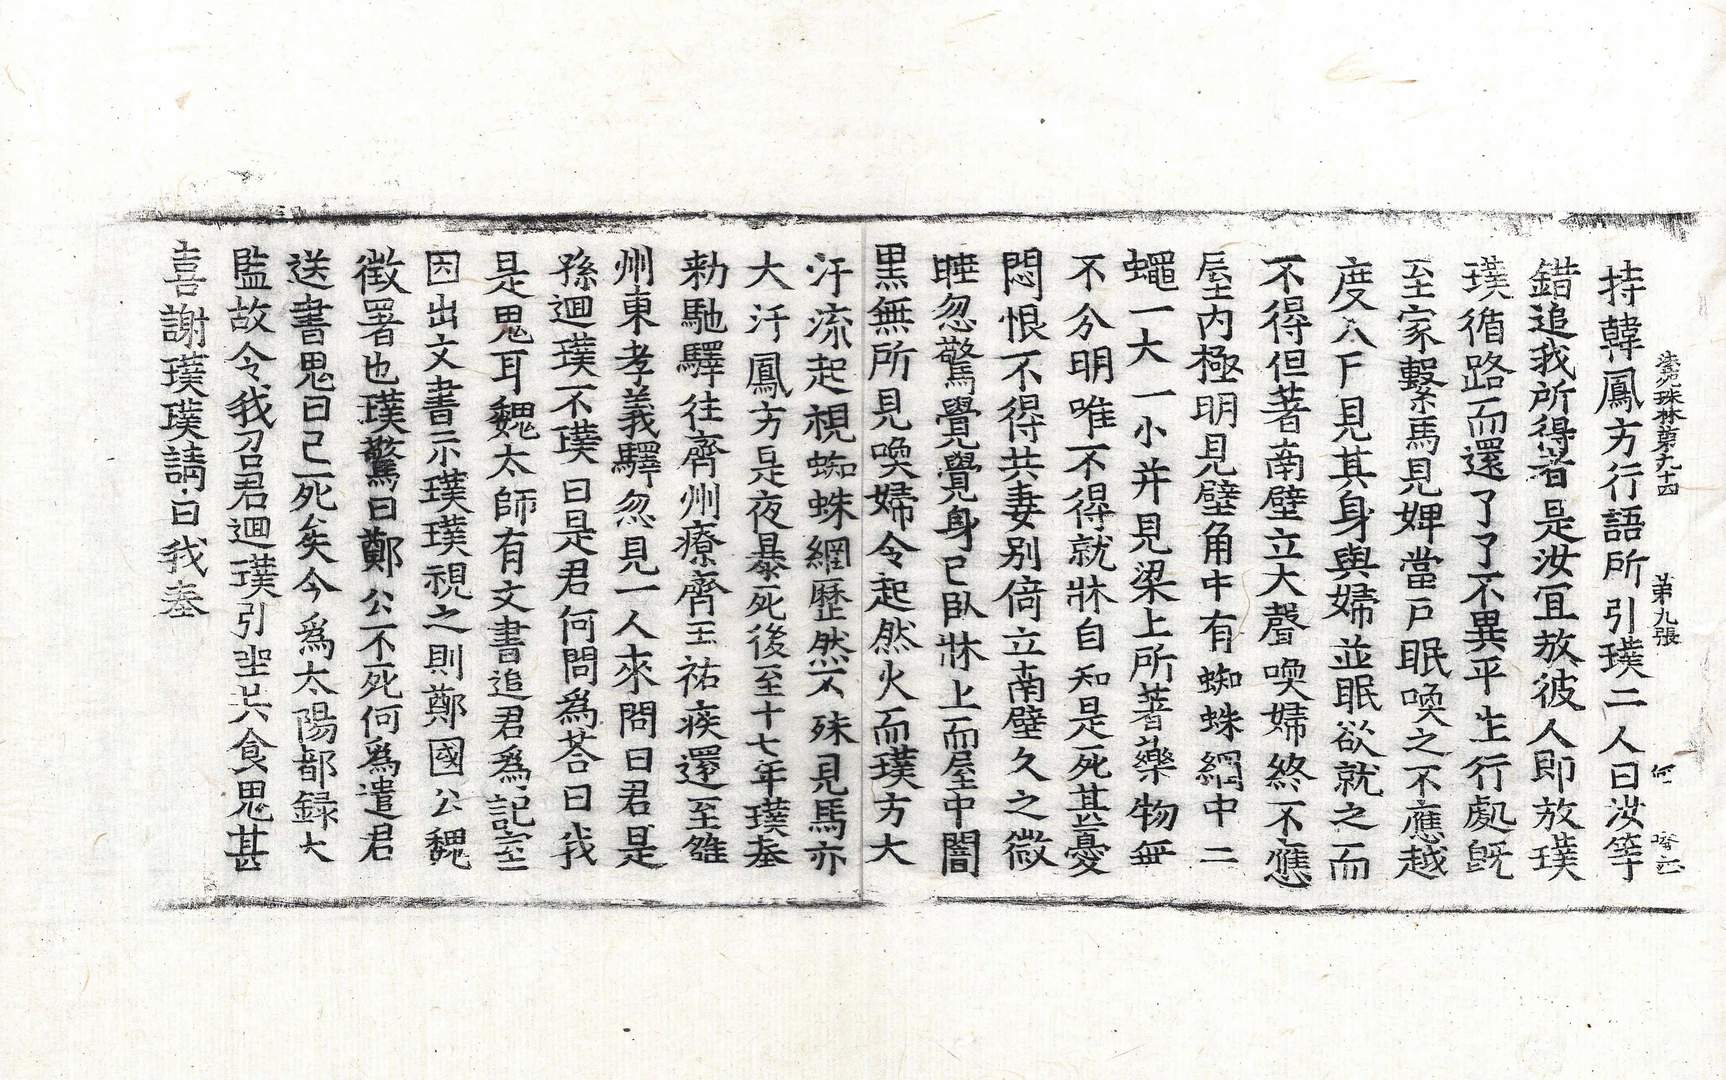 法苑珠林第九十四 第九張 何
持韓鳳方行語所引璞二人曰汝等
錯追我所得者是汝宜放彼人即放璞
璞循路而還了了不異平生行處旣
至家繫馬見婢當戸眠喚之不應越
度入戸見其身與婦並眠欲就之而
不得但著南壁立大聲喚婦終不應
屋内極明見壁角中有蜘蛛網中二
蠅一大一小并見梁上所著藥物無
不分明唯不得就牀自知是死甚憂
悶恨不得共妻別倚立南壁久之微
睡忽驚覺覺身已臥牀上而屋中闇
黒無所見喚婦令起然火而璞方大
汗流起視蜘蛛網歷然不殊見馬亦
大汗鳳方是夜暴死後至十七年璞奉
勑馳驛往齊州療齊王祐疾還至雒
州東孝義驛忽見一人來問曰君是
孫迴璞不璞曰是君何問爲荅曰我
是鬼耳魏太師有文書追君爲記室
因出文書示璞璞視之則鄭國公魏
徵署也璞驚曰鄭公不死何爲遣君
送書鬼曰已死矣今爲太陽都録大
監故令我召君迴璞引坐共食鬼甚
喜謝璞璞請曰我奉